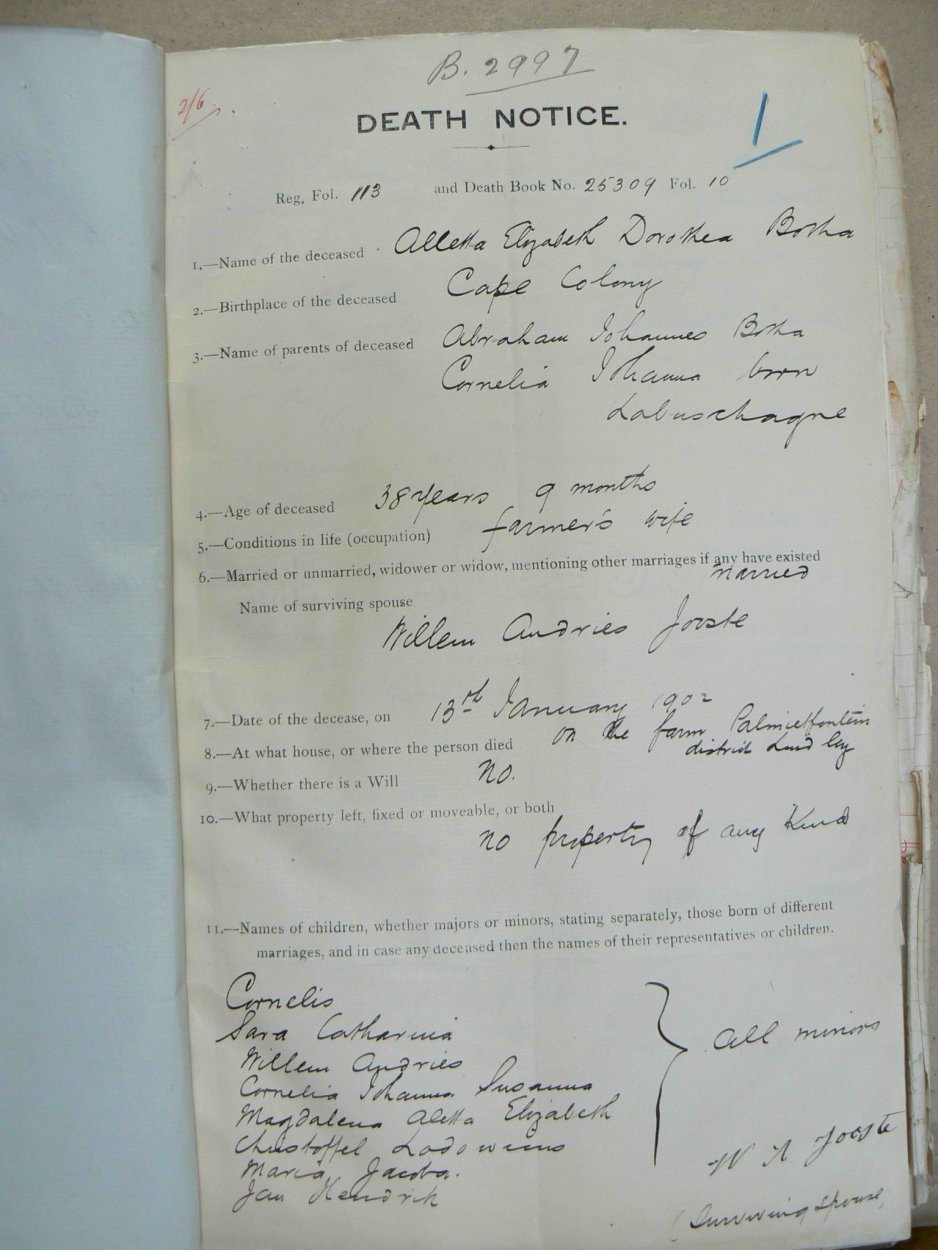 B. 2997
2/6
DEATH NOTICE.
1
Reg. Fol. 113 and Death Book No. 25309 Fol. 10
1.—Name of the deceased Alletta Elizabeth Dorothea Botha
2.—Birthplace of the deceased Cape Colony
3.—Name of parents of deceased Abraham Johannes Botha
Cornelia Johanna born
Labuschagne
4.—Age of deceased 38 years 9 months
5.—Conditions in life (occupation) farmer's wife
6.—Married or unmarried, widower or widow, mentioning other marriages if any have existed
married
Name of surviving spouse
Willem Andries Jooste
7.—Date of the decease, on 13th January 1902
8.—At what house, or where the person died on the farm Palmietfontein
district
9.—Whether there is a Will No.
10.—What property left, fixed or moveable, or both
no property of any Kind
11.—Names of children, whether majors or minors, stating separately, those born of different
marriages, and in case any deceased then the names of their representatives or children.
Cornelis
Sara Catharina
Willem Andries
Cornelia Johanna Susanna
Magdalena Aletta Elizabeth
Christoffel Lodowicus
Maria Jacoba.
Jan Hendrik
all minors
W A Jooste
(Surviving spouse)